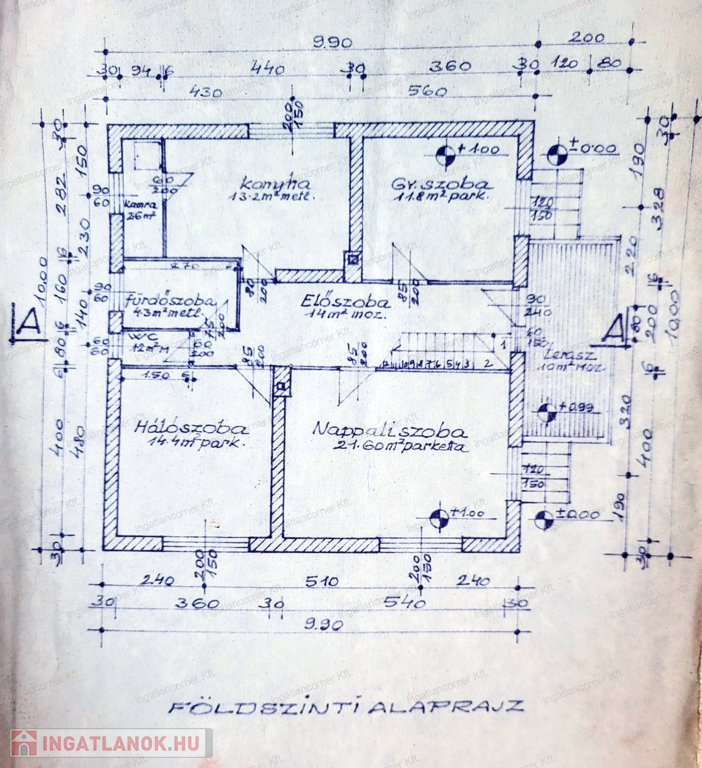 9.90
200
30
94
6
440
30
360
30
120
80
430
560
200
150
+1.00
±0.00
konyha
13.2m² metl.
Gy. szoba
11.8m² park.
60
200
Kamra
2.6m²
90
60
120
150
270
fürdőszoba
4.3m² metl.
Előszoba
14m² moz.
80
200
85
200
90
240
60
150
75
200
W.C
60
200
85
200
85
200
1
2
150
Terasz
10m² moz
+0.99
A
A
Hálószoba
14.4m² park.
Nappali szoba
21.60m² parketta
120
150
±1.00
±0.00
200
150
200
150
30
150
282
230
10.00
6
160
140
6
80
6
400
480
30
30
190
328
2.20
6
200
80
10.00
6
320
400
190
30
240
510
240
30
360
30
540
30
9.90
FÖLDSZINTI ALAPRAJZ
INGATLANOK.HU
Ingatlancorner Kft.